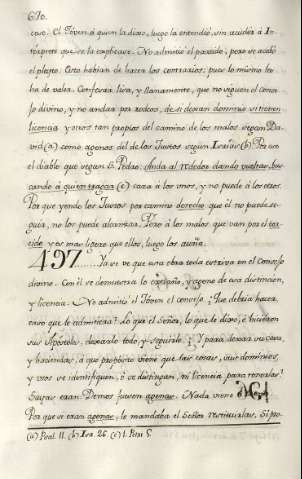 670.
caso. El Joven á quien la dixo, luego la entendió, sin acudir á In-
terprete que se la explicase. No admitió el partido, pero se acabó
el pleyto. Esto habian de hacer los contrarios: pues lo mismo les
ha de valer. Confesar lisa, y llanamente, que no siguen el conse-
jo divino, y no andar por rodeos, de si dexan dominio, si tienen
licencia y otros tan propios del camino de los malos segun Da-
vid (a) como agenos del de los Justos segun Isaias (b) Por eso
el diablo que segun S. Pedro, anda al rededor dando vueltas, bus-
cando á quien tragar, (c) caza á los unos, y no puede á los otros.
Por que yendo los Justos por camino derecho que él no puede se-
guir, no los puede alcanzar. Pero á los malos que van por el tor-
cido y es mas ligero que ellos, luego los
497. Ya se ve que una obra toda estriva en el Consejo
divino. Con él se demuestra lo y agena de esa distincion,
y licencia. No admitió el Joven el consejo. Que debria hacer
caso que le admitiera? Lo que el Señor, lo que le dixo, é hicieron
sus Apostoles, dexarlo todo y seguirle. Y para dexar su casa,
y haciendas, á que proposito viene que las cosas, sus dominios,
y usos se identifiquen, ó se distingan, ni licencia para tenerlas?
Suyas eran. Demos fuesen agenas. Nada viene
Por que si eran agenas, le mandaba el Señor restituirlas. Si pro-
(a) Psal. 11. (b) Isa. 26. (c) 1. Petri 5.